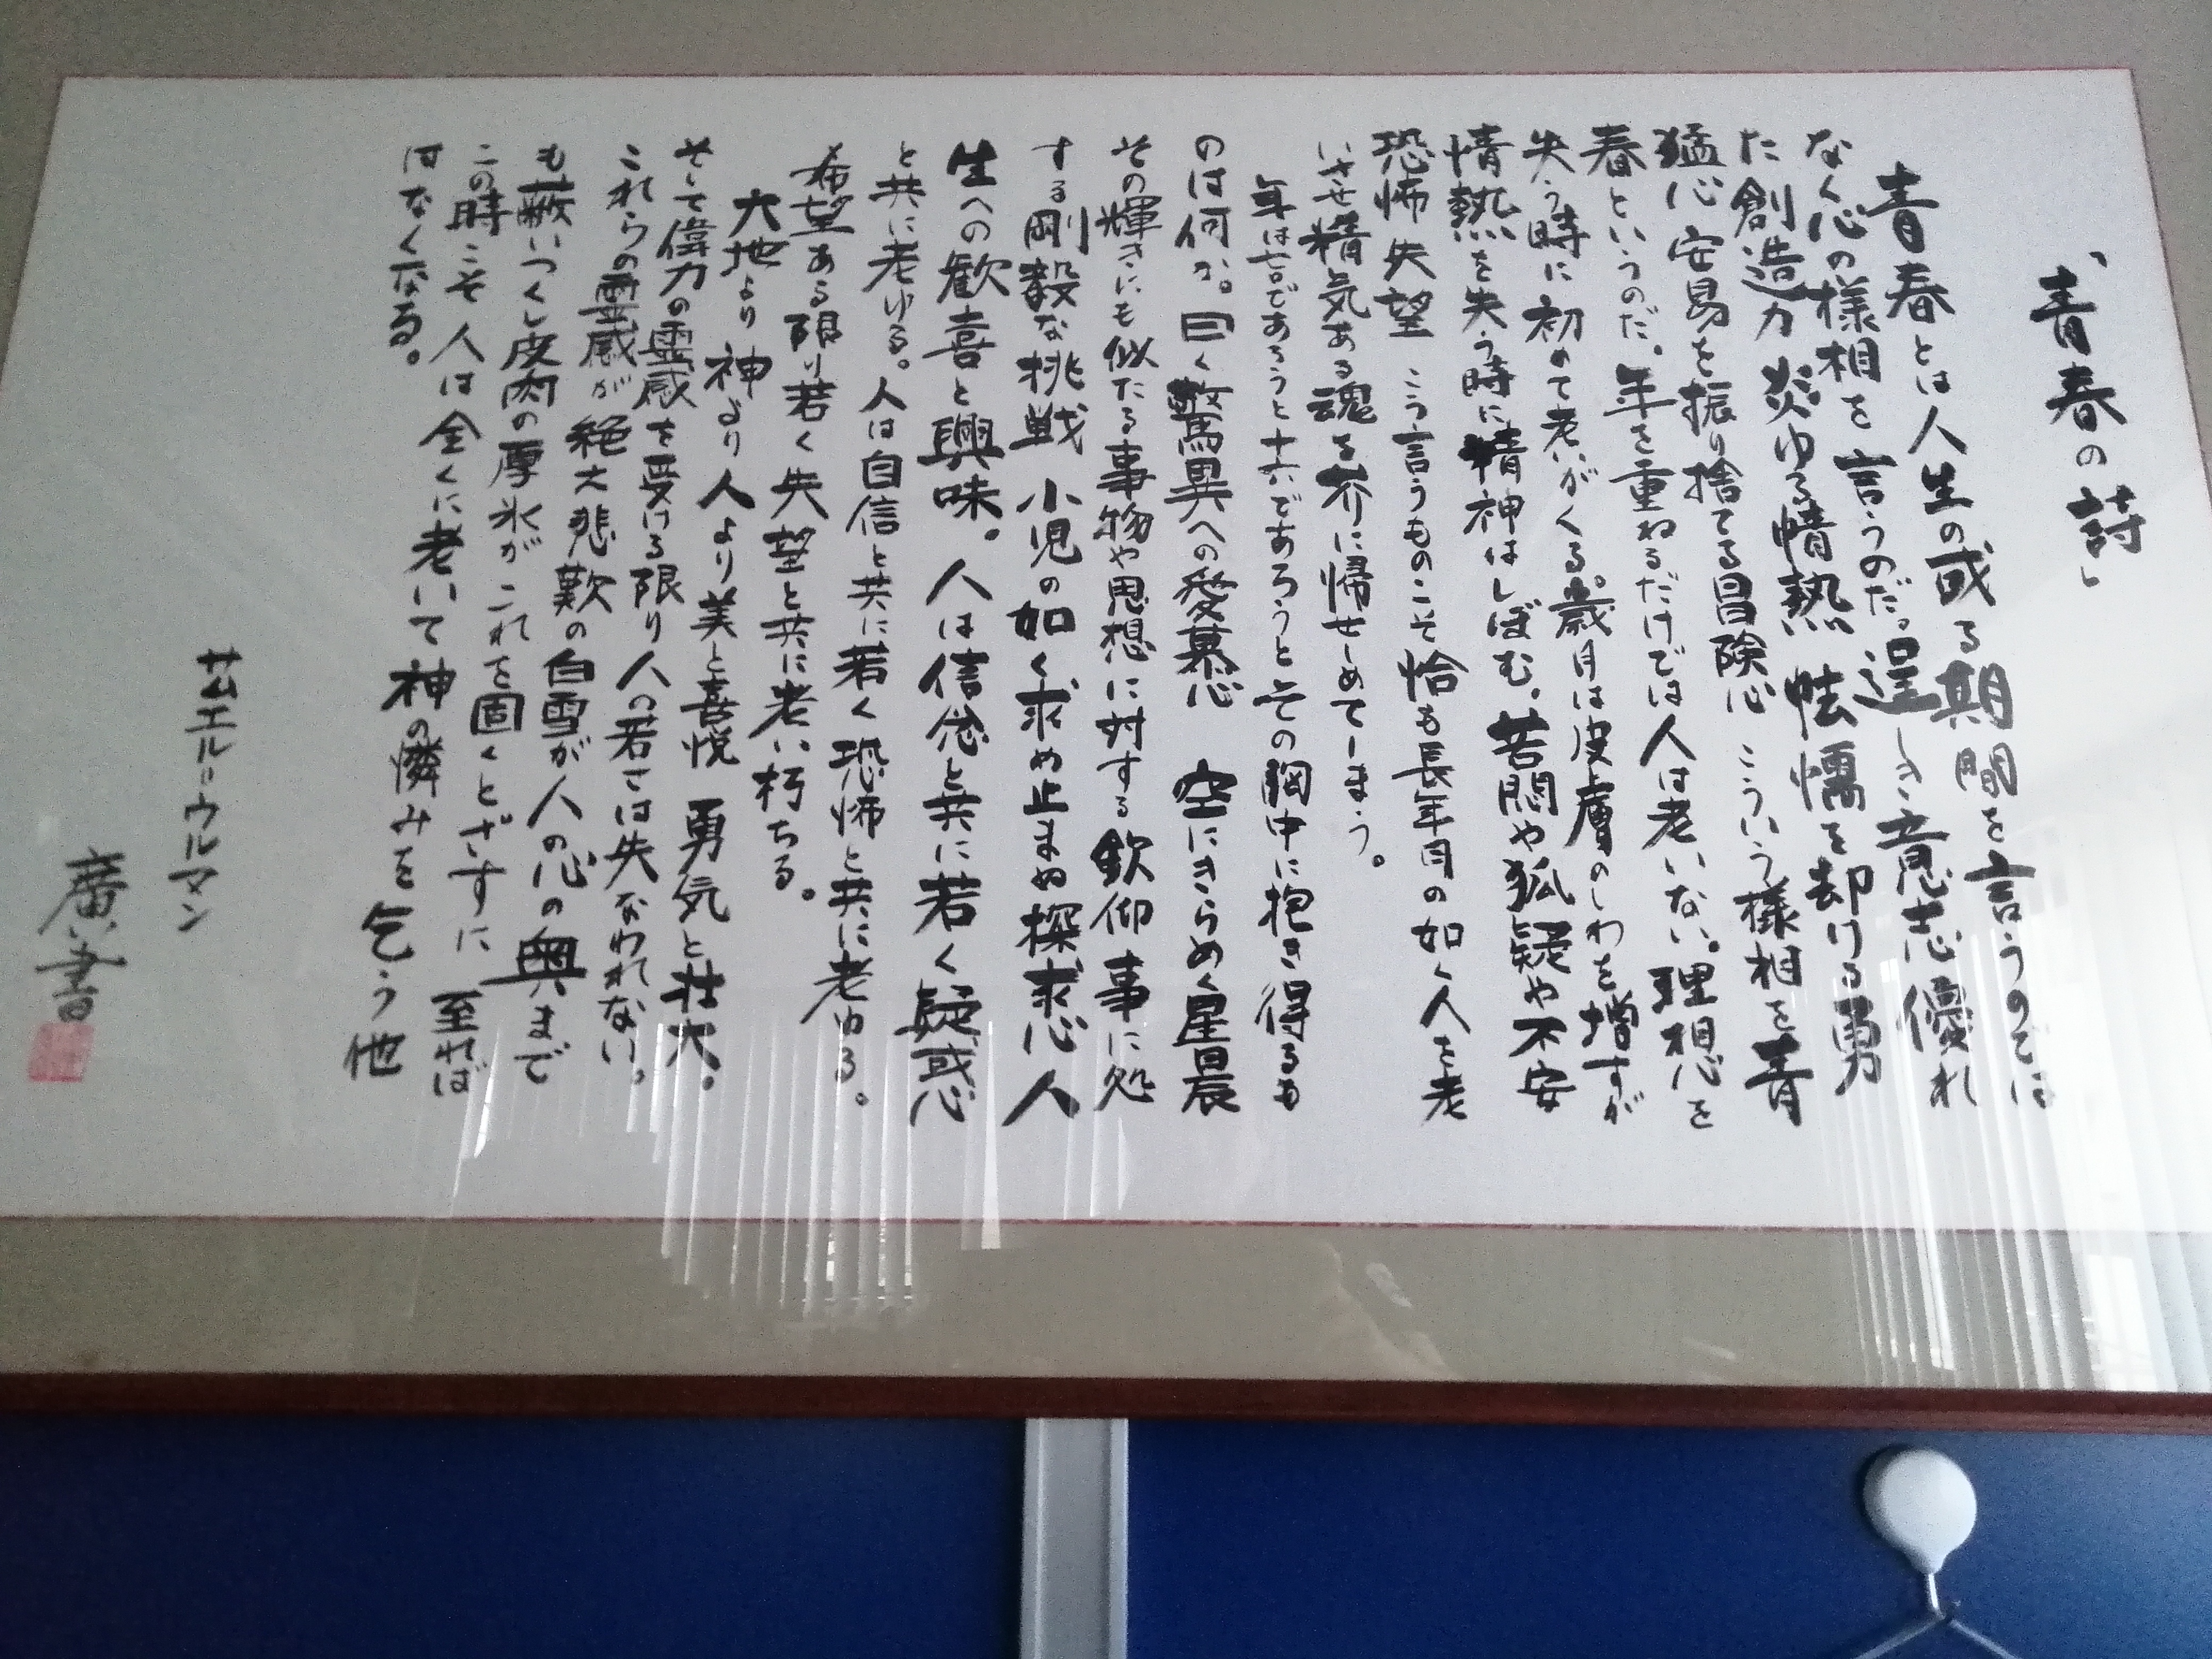 「青春の詩」
青春とは人生の或る期間を言うのでは
なく心の様相を言うのだ。逞しき意志優れ
た創造力 炎ゆる情熱 怯懦を却ける勇
猛心 安易を振り捨てる冒険心 こういう様相を青
春というのだ。年を重ねるだけでは人は老いない。理想を
失う時に初めて老いがくる。歳月は皮膚のしわを増すが
情熱を失う時に精神はしぼむ。苦悶や狐疑や不安
恐怖 失望 こう言うものこそ恰も長年月の如く人を老
いさせ精気ある魂を芥に帰せしめてしまう。
年は七十であろうと十六であろうとその胸中に抱き得るも
のは何か。曰く驚異への愛慕心 空にきらめく星晨
その輝きにも似たる事物や思想に対する欽仰 事に処
する剛毅な挑戦 小児の如く求め止まぬ探求心 人
生への歓喜と興味。人は信念と共に若く疑惑
と共に老ゆる。人は自信と共に若く恐怖と共に老ゆる。
希望ある限り若く失望と共に老い朽ちる。
大地より 神より 人より 美と喜悦 勇気と壮大。
そして偉力の霊感を受ける限り人の若さは失なわれない。
これらの霊感が絶え悲歎の白雪が人の心の奥まで
も蔽いつくし皮肉の厚氷がこれを固くとざすに 至れば
この時こそ人は全くに老いて神の憐みを乞う他
はなくなる。
サムエル=ウルマン
廣書